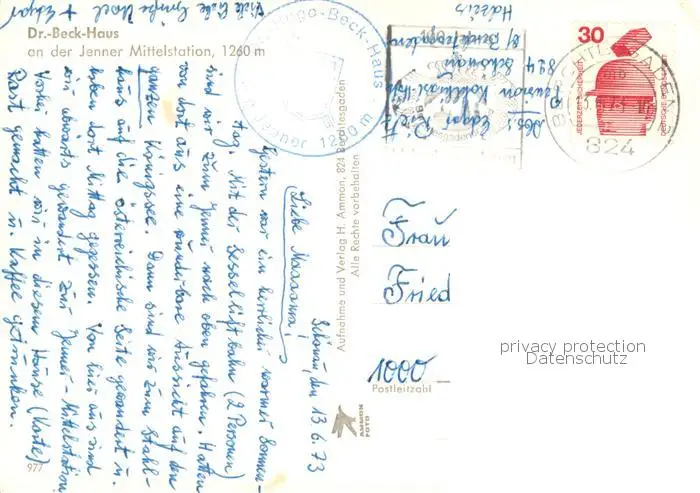 Dr.-Beck-Haus
an der Jenner Mittelstation, 1260 m
Schönau, den 13.6.73
Liebe Maaaama!
Gestern war ein herrlicher warmer Sonnen-
tag. Mit der Sesselliftbahn (2 Personen)
sind wir zum Jenner nach oben gefahren. Hatten
von dort aus eine wunderbare Aussicht auf den
ganzen Königssee. Dann sind wir zum Stahl-
haus auf die österreichische Seite gewandert u.
haben dort Mittag gegessen. Von hier aus sind
wir abwärts gewandert zur Jenner-Mittelstation
Vorher hatten wir in diesem Hause (Karte)
Rast gemacht u. Kaffee getrunken.
Viele liebe Grüße + Edgar
Abs.: Edgar
Pension
824 Schönau
b/ Berchtesgaden
-Beck-Haus
Jenner 1260 m
Aufnahme und Verlag H. Ammon, 824 Berchtesgaden
Alle Rechte vorbehalten
30
JEDERZEIT SICHERHEIT
DEUTSCHE BUNDESPOST
824
Frau
Fried
1000
Postleitzahl
AMMON
FOTO
977
privacy protection
Datenschutz